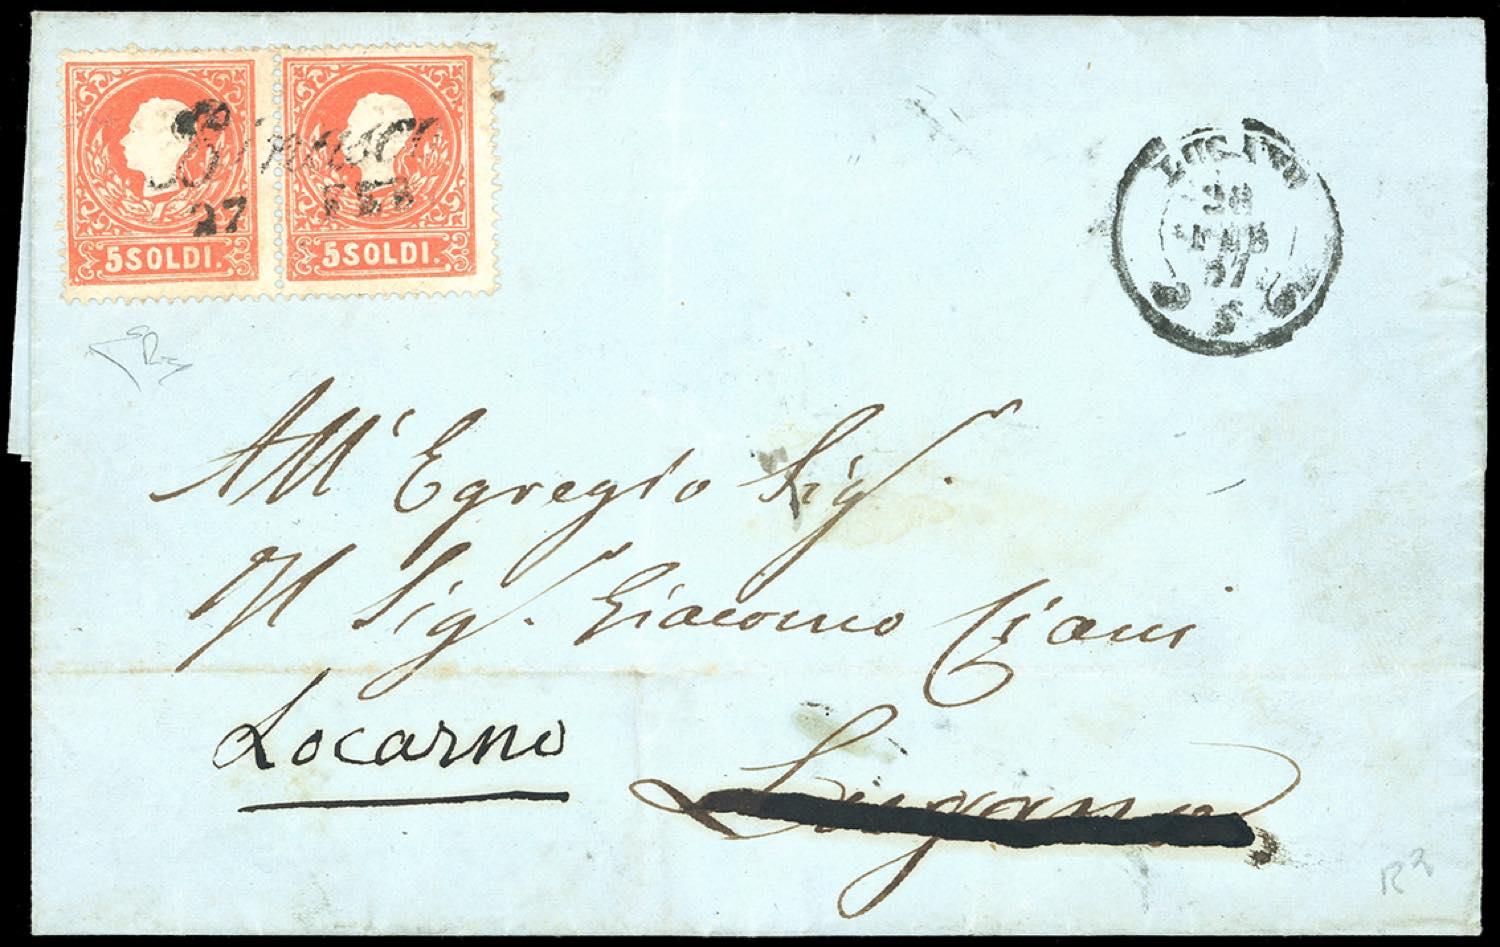 5 SOLDI.
5 SOLDI.
27 FEB
LUGANO
28
FEBB
57
S
All' Egregio Sig.
Il Sig. Giacomo Ciani
Locarno
Lugano
R2